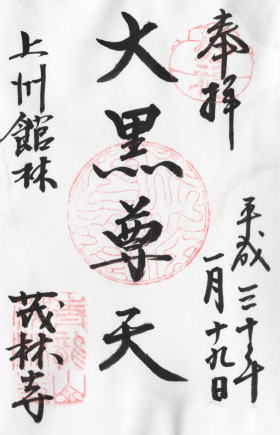 奉拝
平成三十年
一月十九日
大黒尊天
上州館林
茂林寺